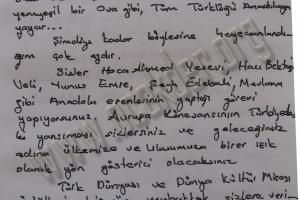 yemyeşil bir Ova gibi, Tüm Türklüğü Anadoluyu
yayar...
Şimdiye kadar böylesine heyecanlandı
ğım çok azdır.
Sizler Hoca Ahmed Yesevi, Hacı Bektaş
Veli, Yunus Emre, Şeyh Edebali, Mevlana
gibi Anadolu erenlerinin yaptığı görevi
yapıyorsunuz. Avrupa Rönesansının Türkiyede
ki yansıması sizlersiniz ve geleceğiniz
adına ülkemize ve Ulusumuza birer ışık
olarak yön gösterici olacaksınız
Türk Dünyası ve Dünya Kültür Mirası
sizlere veri